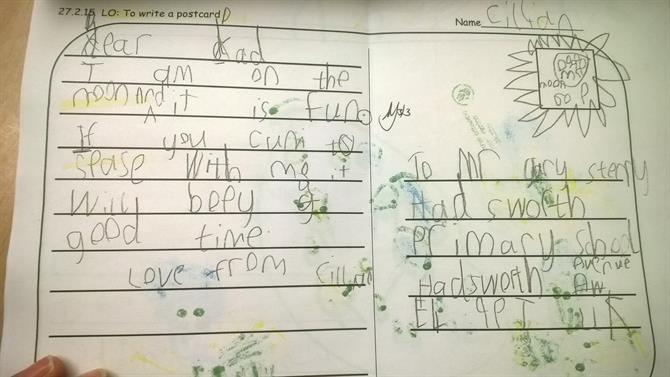 27.2.15 LO: To write a postcard
Name Cillian
Dear Dad
I am on the
moon And it is fun.
If you cum to
spase with me it
Will beey a
good time.
Love from Cillian
To Mr gary sterry
Hadsworth
Primary School
Hadsworth Avenue Aw.
E4 UK